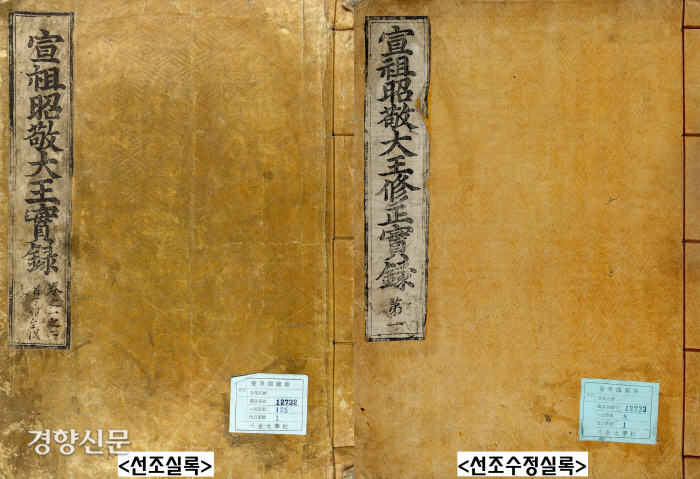 宣祖昭敬大王實錄
卷之一之二
宣祖昭敬大王修正實錄
第一
奎章閣圖書
12732
125
1
서울大學校
奎章閣圖書
12733
8
1
서울大學校
경향신문
<선조실록>
<선조수정실록>